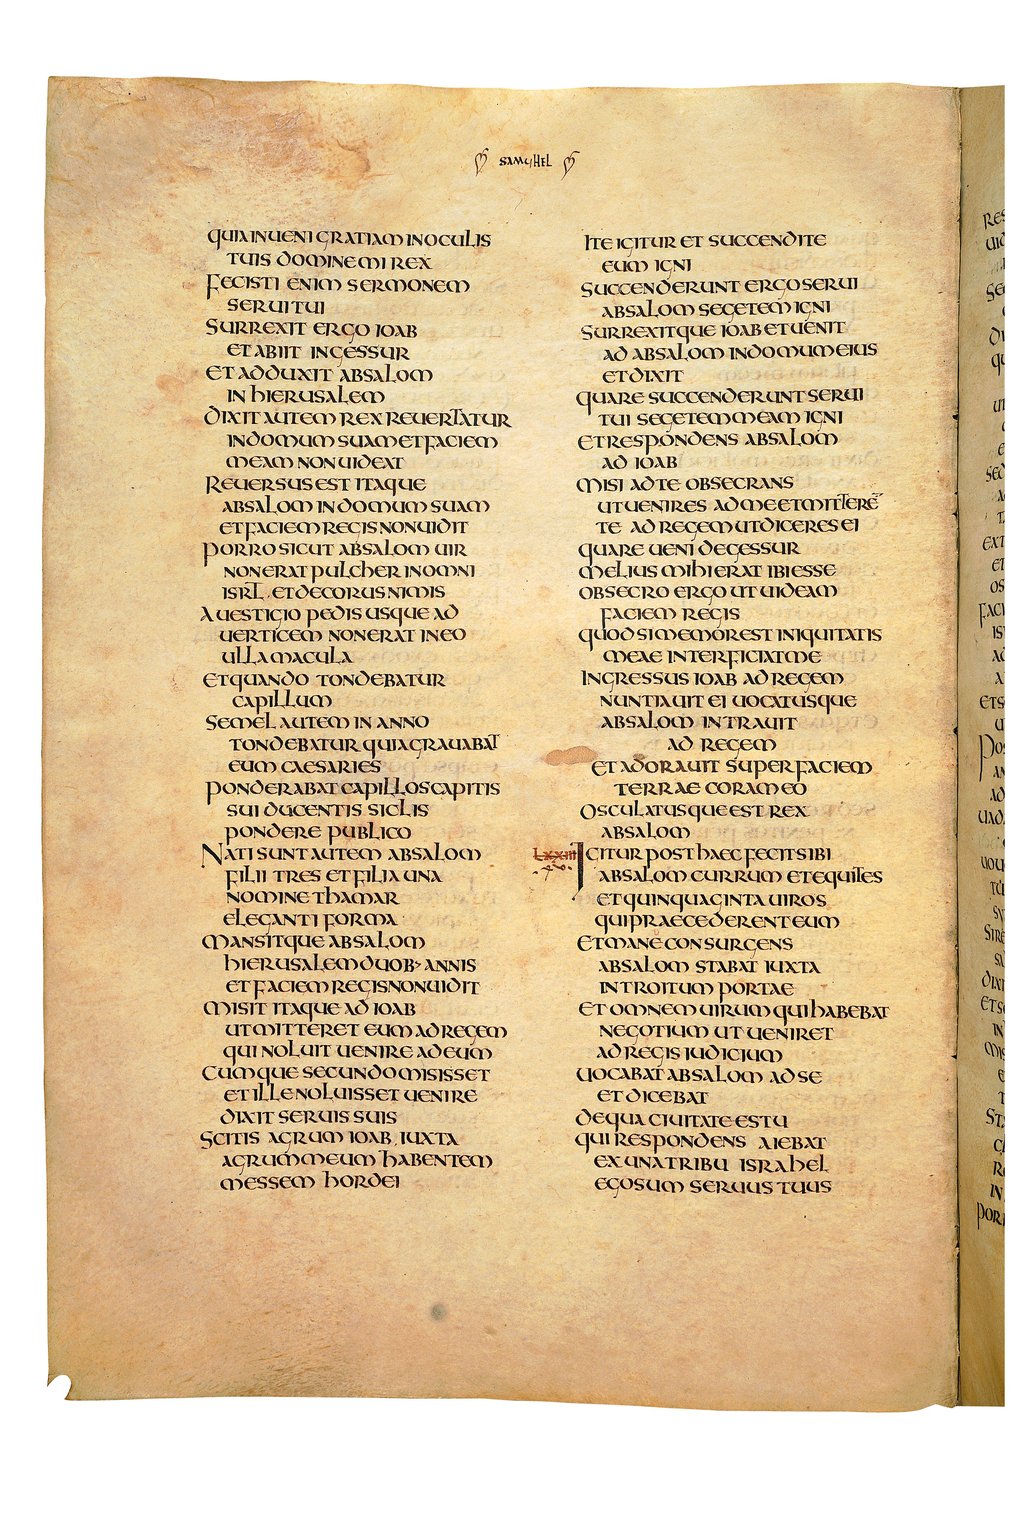 SAMUHEL
QUIA INUENI GRATIAM IN OCULIS
TUIS DOMINE MI REX
FECISTI ENIM SERMONEM
SERUI TUI
SURREXIT ERGO IOAB
ET ABIIT IN GESSUR
ET ADDUXIT ABSALOM
IN HIERUSALEM
DIXIT AUTEM REX REUERTATUR
IN DOMUM SUAM ET FACIEM
MEAM NON UIDEAT
REUERSUS EST ITAQUE
ABSALOM IN DOMUM SUAM
ET FACIEM REGIS NON UIDIT
PORRO SICUT ABSALOM UIR
NON ERAT PULCHER IN OMNI
ISRL. ET DECORUS NIMIS
A UESTIGIO PEDIS USQUE AD
UERTICEM NON ERAT IN EO
ULLA MACULA
ET QUANDO TONDEBATUR
CAPILLUM
SEMEL AUTEM IN ANNO
TONDEBATUR QUIA GRAUABAT
EUM CAESARIES
PONDERABAT CAPILLOS CAPITIS
SUI DUCENTIS SICLIS
PONDERE PUBLICO
NATI SUNT AUTEM ABSALOM
FILII TRES ET FILIA UNA
NOMINE THAMAR
ELEGANTI FORMA
MANSITQUE ABSALOM
HIERUSALEM DUOB· ANNIS
ET FACIEM REGIS NON UIDIT
MISIT ITAQUE AD IOAB
UT MITTERET EUM AD REGEM
QUI NOLUIT UENIRE AD EUM
CUMQUE SECUNDO MISISSET
ET ILLE NOLUISSET UENIRE
DIXIT SERUIS SUIS
SCITIS AGRUM IOAB, IUXTA
AGRUM MEUM HABENTEM
MESSEM HORDEI
ITE IGITUR ET SUCCENDITE
EUM IGNI
SUCCENDERUNT ERGO SERUI
ABSALOM SEGETEM IGNI
SURREXITQUE IOAB ET UENIT
AD ABSALOM IN DOMUM EIUS
ET DIXIT
QUARE SUCCENDERUNT SERUI
TUI SEGETEM MEAM IGNI
ET RESPONDENS ABSALOM
AD IOAB
MISI AD TE OBSECRANS
UT UENIRES AD ME ET MITTERĒ
TE AD REGEM UT DICERES EI
QUARE UENI DE GESSUR
MELIUS MIHI ERAT IBI ESSE
OBSECRO ERGO UT UIDEAM
FACIEM REGIS
QUOD SI MEMOR EST INIQUITATIS
MEAE INTERFICIAT ME
INGRESSUS IOAB AD REGEM
NUNTIAUIT EI UOCATUSQUE
ABSALOM INTRAUIT
AD REGEM
ET ADORAUIT SUPER FACIEM
TERRAE CORAM EO
OSCULATUSQUE EST REX
ABSALOM
LXXIII IGITUR POST HAEC FECIT SIBI
ABSALOM CURRUM ET EQUITES
ET QUINQUAGINTA UIROS
QUI PRAECEDERENT EUM
ET MANE CONSURGENS
ABSALOM STABAT IUXTA
INTROITUM PORTAE
ET OMNEM UIRUM QUI HABEBAT
NEGOTIUM UT UENIRET
AD REGIS IUDICIUM
UOCABAT ABSALOM AD SE
ET DICEBAT
DE QUA CIUITATE ES TU
QUI RESPONDENS AIEBAT
EX UNA TRIBU ISRAHEL
EGO SUM SERUUS TUUS